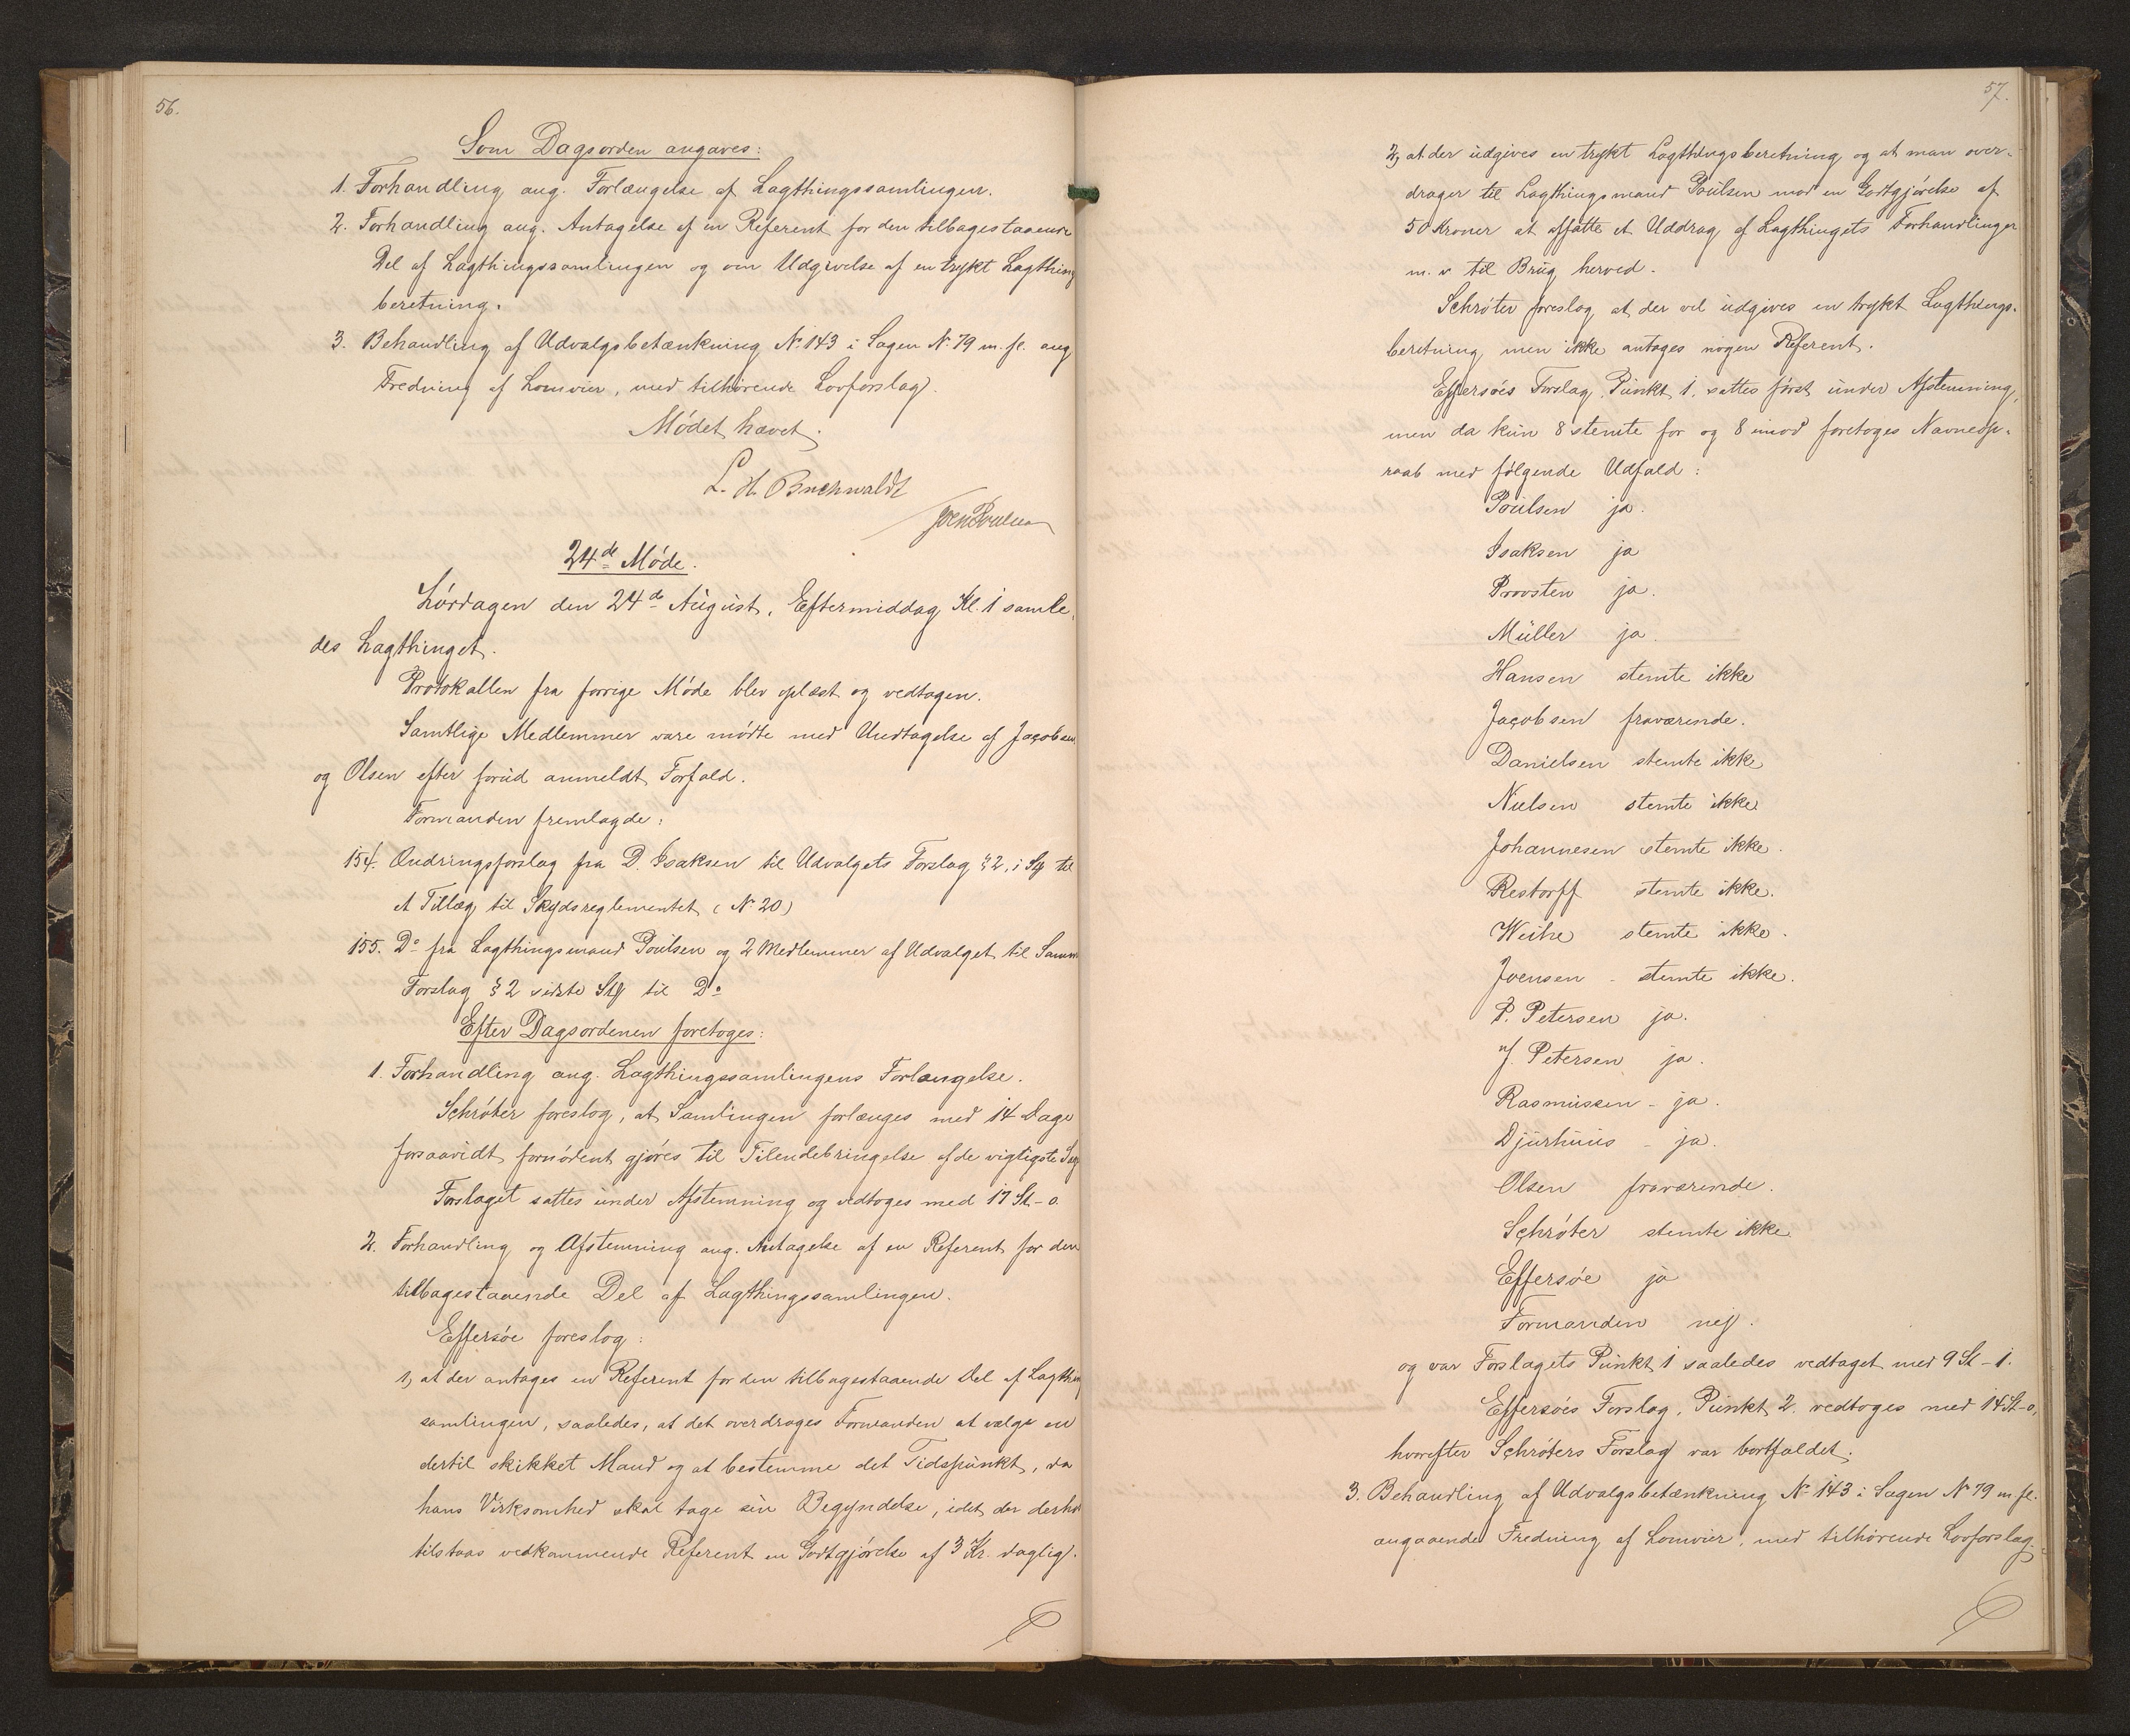 56.
Som Dagsorden angaves:
1. Forhandling ang. Forlængelse af Lagthingssamlingen.
2. Forhandling ang. Antagelse af en Referent for den tilbagestaaende
Del af Lagthingssamlingen og om Udgivelse af en trykt Lagthings
beretning.
3. Behandling af Udvalgsbetænkning No 143 i Sagen No 79 m. fl. ang
Fredning af Lomvier, med tilhörende Lovforslag.
Mödet hævet.
L. H. Buchwaldt
Joen Poulsen
24de Möde.
Lördagen den 24de August, Eftermiddag Kl. 1 samle,
des Lagthinget.
Protokollen fra forrige Möde blev oplæst og vedtagen.
Samtlige Medlemmer vare mödte med Undtagelse af Jacobsen
og Olsen efter forud anmeldt Forfald.
Formanden fremlagde:
154. Ændringsforslag fra D. Isaksen til Udvalgets Forslag § 2, i Stg til
et Tillæg til Skydsreglementet (No 20)
155. Do fra Lagthingsmand Poulsen og 2 Medlemmer af Udvalget til Samme
Forslag § 2 sidste Stg til Do
Efter Dagsordenen foretoges:
1. Forhandling ang. Lagthingssamlingens Forlængelse.
Schröter foreslog, at Samlingen forlænges med 14 Dage
forsaavidt fornödent gjöres til Tilendebringelse af de vigtigste Sag
Forslaget sattes under Afstemning og vedtoges med 17 St - 0.
2. Forhandling og Afstemning ang. Antagelse af en Referent for den
tilbagestaaende Del af Lagthingssamlingen.
Effersöe foreslog:
1, at der antages en Referent for den tilbagestaaende Del af Lagthings
samlingen, saaledes, at det overdrages Formanden at vælge en
dertil skikket Mand og at bestemme det Tidspunkt, da
hans Virksomhed skal tage sin Begyndelse, idet der derhos
tilstaas vedkommende Referent en Godtgjörelse af 3 Kr. daglig.
57.
2, at der udgives en trykt Lagthingsberetning og at man over-
drager til Lagthingsmand Poulsen mod en Godtgjörelse af
50 Kroner at affatte et Uddrag af Lagthingets Forhandlinger
m. v til Brug herved.
Schröter foreslog at der vel udgives en trykt Lagthings-
beretning men ikke antages nogen Referent.
Effersöes Forslag, Punkt 1. sattes först under Afstemning,
men da kun 8 stemte for og 8 imod foretoges Navneop-
raab med fölgende Udfald:
Poulsen ja.
Isaksen ja
Provsten ja.
Müller ja.
Hansen stemte ikke
Jacobsen fraværende.
Danielsen stemte ikke
Nielsen stemte ikke
Johannesen stemte ikke.
Restorff stemte ikke.
Weihe stemte ikke.
Joensen - stemte ikke.
P. Petersen ja.
J. Petersen ja.
Rasmussen - ja.
Djurhuus - ja.
Olsen fraværende.
Schröter stemte ikke
Effersöe ja
Formanden nej.
og var Forslagets Punkt 1 saaledes vedtaget med 9 St - 1.
Effersöes Forslag, Punkt 2. vedtoges med 14 St-0,
hvorefter Schröters Forslag var bortfaldet.
3. Behandling af Udvalgsbetænkning No 143 i Sagen No 79 m. fl.
angaaende Fredning af Lomvier, med tilhörende Lovforslag.